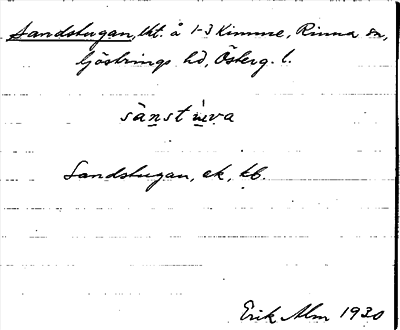 Sandstugan, lht. å 1-3 Kimme, Rinna sn,
Göstrings hd, Österg. l.
sànstùva
Sandstugan, ek, kb.
Erik Alm 1930